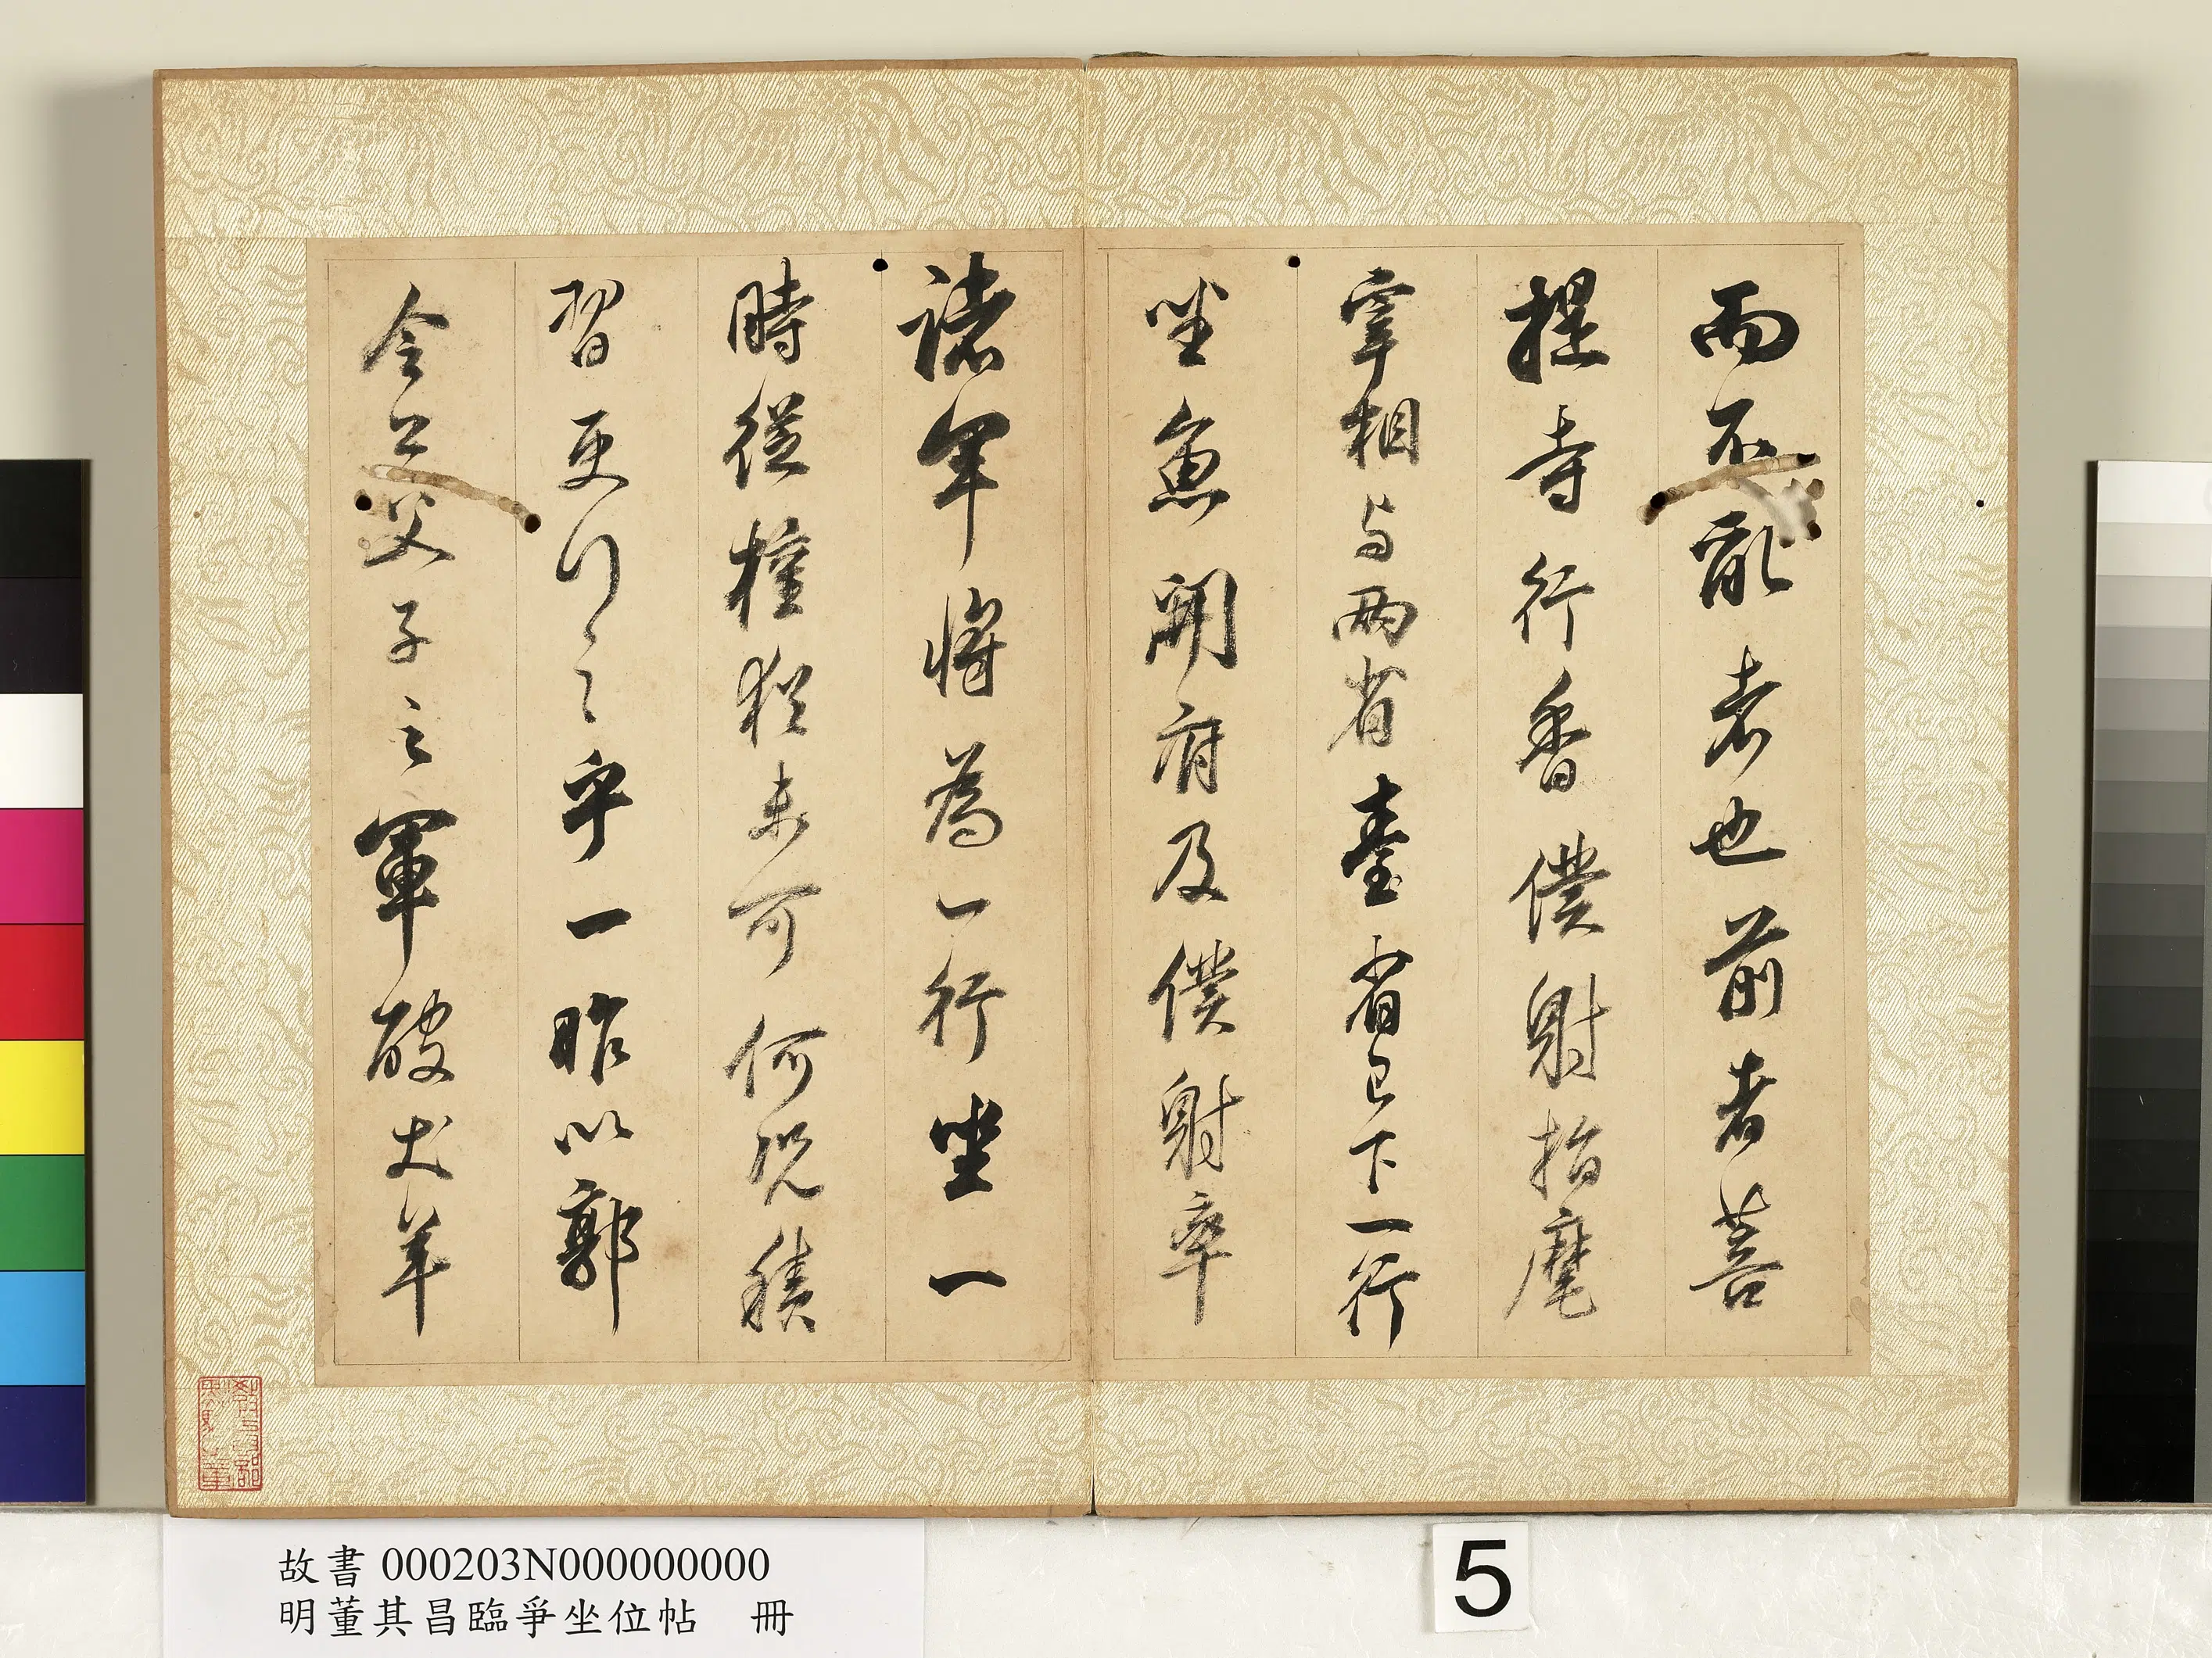 而不亂者也前者菩
提寺行香僕射指麾
宰相与兩省臺省已下一行
坐魚開府及僕射率
諸軍將為一行坐一
時從權猶未可何況積
習更行之乎一昨以郭
令公父子之軍破犬羊
故書 000203N000000000
明董其昌臨爭坐位帖 冊
5